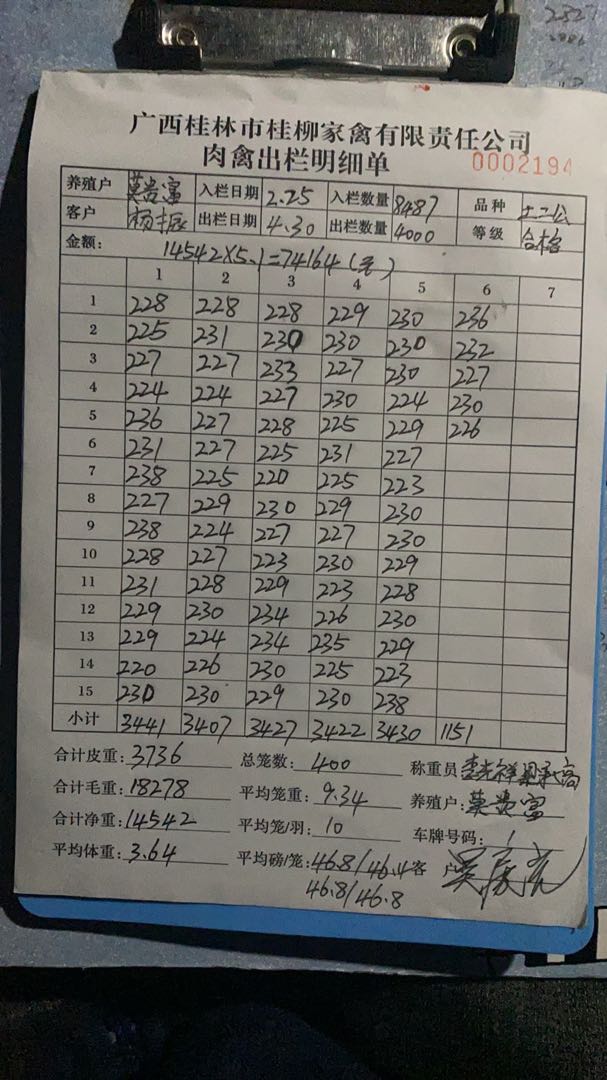 广西桂林市桂柳家禽有限责任公司
肉禽出栏明细单 0002194
养殖户 莫贵富 入栏日期 2.25 入栏数量 8487 品种 土二公
客户 杨振 出栏日期 4.30 出栏数量 4000 等级 合格
金额: 14542×5.1=74164(元)
1 2 3 4 5 6 7
1 228 228 228 229 230 236
2 225 231 230 230 230 232
3 227 227 233 227 230 227
4 224 224 227 230 224 230
5 236 227 228 225 229 226
6 231 227 225 231 227
7 238 225 220 225 223
8 227 229 230 229 230
9 238 224 227 227 230
10 228 227 223 230 229
11 231 228 229 223 228
12 229 230 234 226 230
13 229 224 234 235 229
14 220 226 230 225 223
15 230 230 229 230 238
小计 3441 3407 3427 3422 3430 1151
合计皮重: 3736 总笼数: 400 称重员
合计毛重: 18278 平均笼重: 9.34 养殖户: 莫贵富
合计净重: 14542 平均笼/羽: 10 车牌号码: 1
平均体重: 3.64 平均磅/笼: 46.8/46.4 客户
46.8/46.8